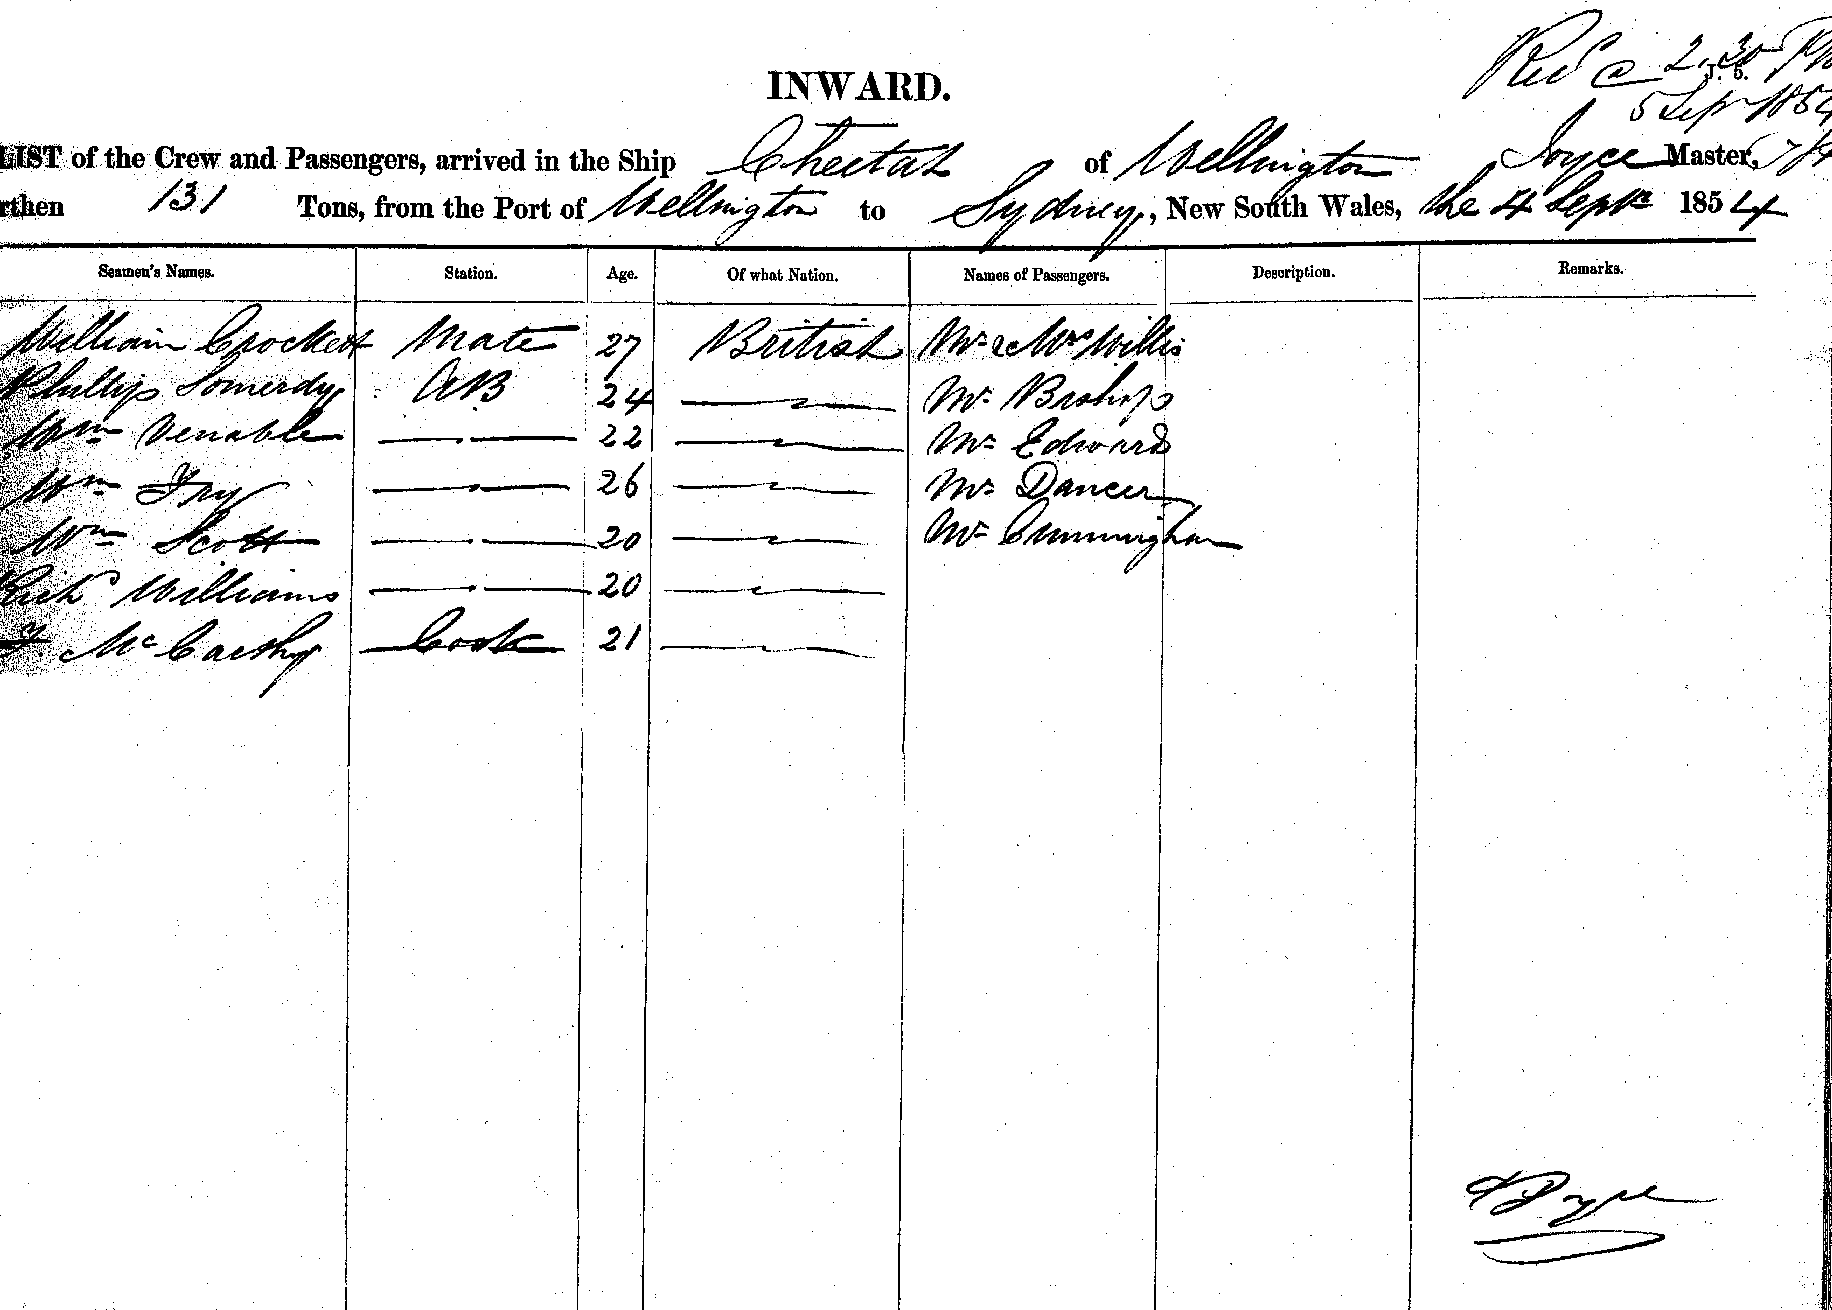 Recd @ 2.30 PM
J. S.
5 Sep 1854
INWARD.
LIST of the Crew and Passengers, arrived in the Ship Cheetah of Wellington Joyce Master,
rthen 131 Tons, from the Port of Wellington to Sydney, New South Wales, the 4 Septr 1854
Seamen's Names. Station. Age. Of what Nation. Names of Passengers. Description. Remarks.
William Crockett Mate 27 British Mr & Mrs Willis
Phillip Somerdy AB 24 — Mr Bishop
Wm Venable — 22 — Mr Edward
Wm Fry — 26 — Mr Dancer
Wm Scott — 20 — Mr Cunningham
Richd Williams — 20 —
McCarthy Cook 21 —
Joyce